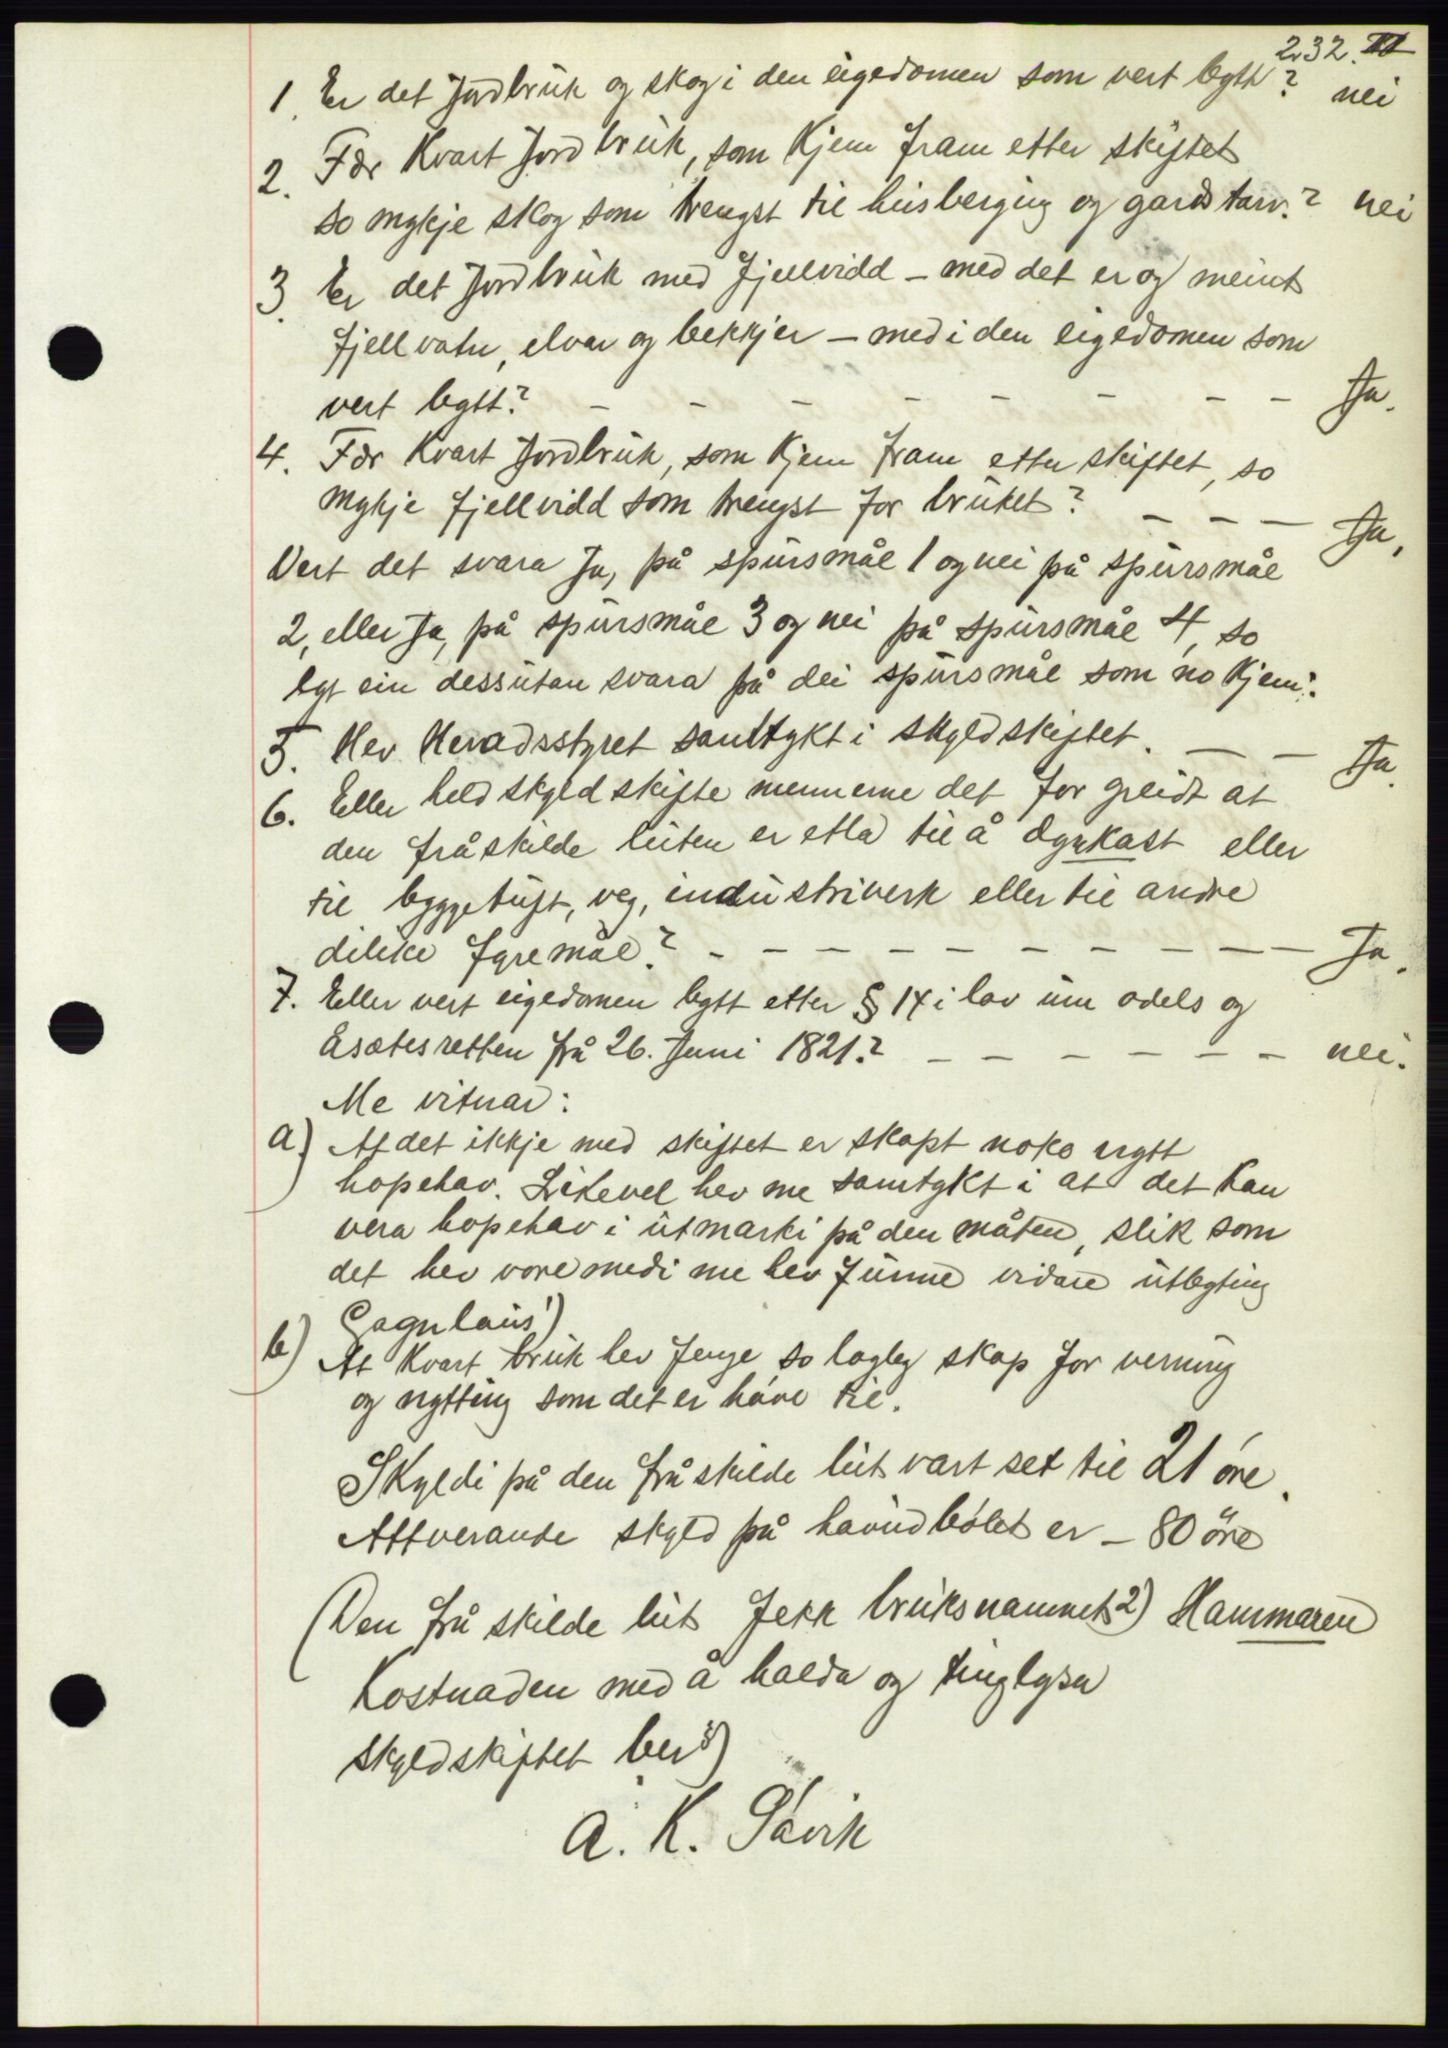 232.
1. Er det jordbruk og skog i den eigedomen som vert bytt? nei
2. Fær kvart jordbruk, som kjem fram etter skiftet
so mykje skog som trengst til husbering og gards tarv.? nei
3. Er det jordbruk med fjellvidd – med det er og meint
fjellvatn, elvar og bekkjer – med i den eigedomen som
vert bytt? – – – – – – – – Ja.
4. Fær kvart jordbruk, som kjem fram etter skiftet, so
mykje fjellvidd som trengst for bruket? – – – Ja,
Vert det svara Ja, på spursmål 1 og nei på spursmål
2, eller Ja, på spursmål 3 og nei på spursmål 4, so
lyt ein dessutan svara på dei spursmål som no kjem:
5. Hev Heradsstyret samtykt i skyldskiftet. – – Ja.
6. Eller held skyldskifte mennerne det for greidt at
den fråskilde luten er etla til å dyrkast eller
til byggetuft, veg, industriverk eller til andre
dilike fyremål? – – – – – – – – – – Ja.
7. Eller vert eigedomen bytt etter § 14 i lov um odels og
Åsætesretten frå 26. Juni 1821.? – – – – – – nei.
Me vitnar:
a) At det ikkje med skiftet er skapt noko nytt
hopehav. Likevel hev me samtykt i at det kan
vera hopehav i utmarki på den måten, slik som
det hev vore medi me hev funne vidare utbyting
Gagnlaus 1)
b) At kvart bruk hev fenge so lagleg skap for verning
og nytting som det er høve til.
Skyldi på den fråskilde lut vart set til 21 øre.
Attverande skyld på havudbølet er – 80 öre
(Den frå skilde lut fekk bruksnamnet 2) Hammaren
Kostnaden med å halda og tinglysa
skyldskiftet ber 3)
A. K. Søvik